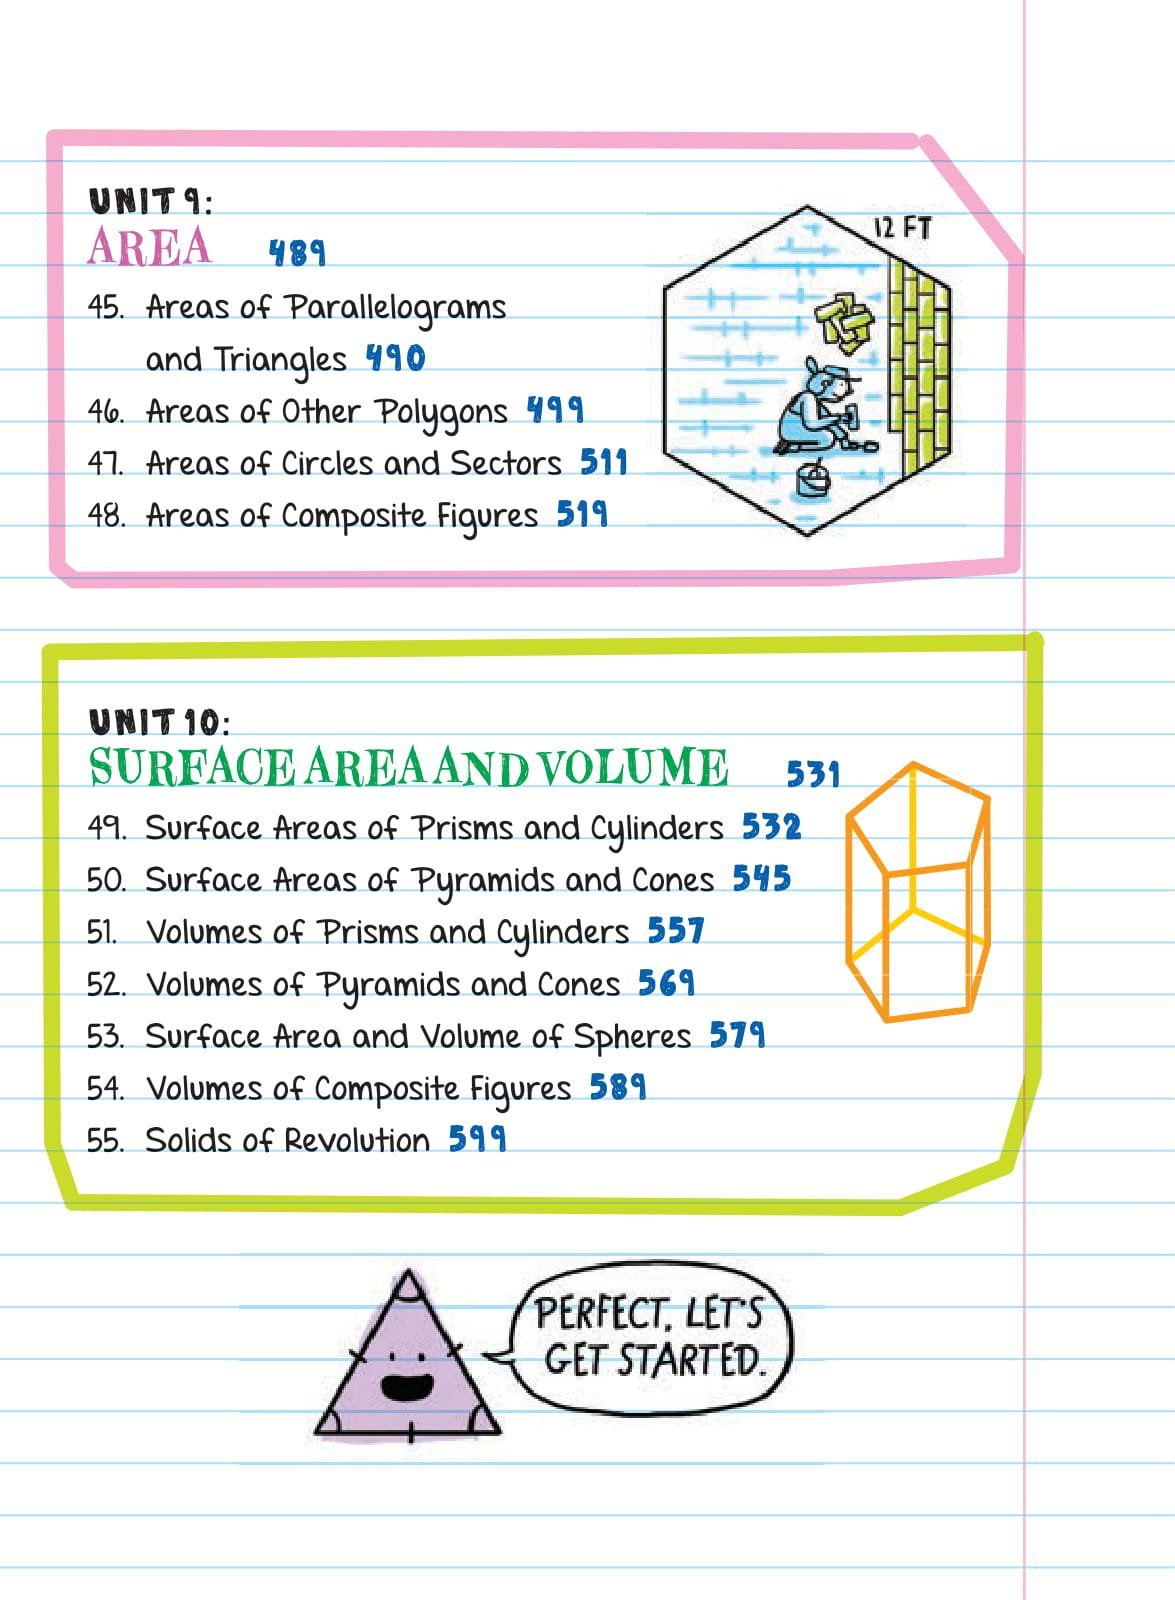 UNIT 9:
AREA 489
45. Areas of Parallelograms
and Triangles 490
46. Areas of Other Polygons 499
47. Areas of Circles and Sectors 511
48. Areas of Composite Figures 519
12 FT
UNIT 10:
SURFACE AREA AND VOLUME 531
49. Surface Areas of Prisms and Cylinders 532
50. Surface Areas of Pyramids and Cones 545
51. Volumes of Prisms and Cylinders 557
52. Volumes of Pyramids and Cones 569
53. Surface Area and Volume of Spheres 579
54. Volumes of Composite Figures 589
55. Solids of Revolution 599
PERFECT. LET'S
GET STARTED.